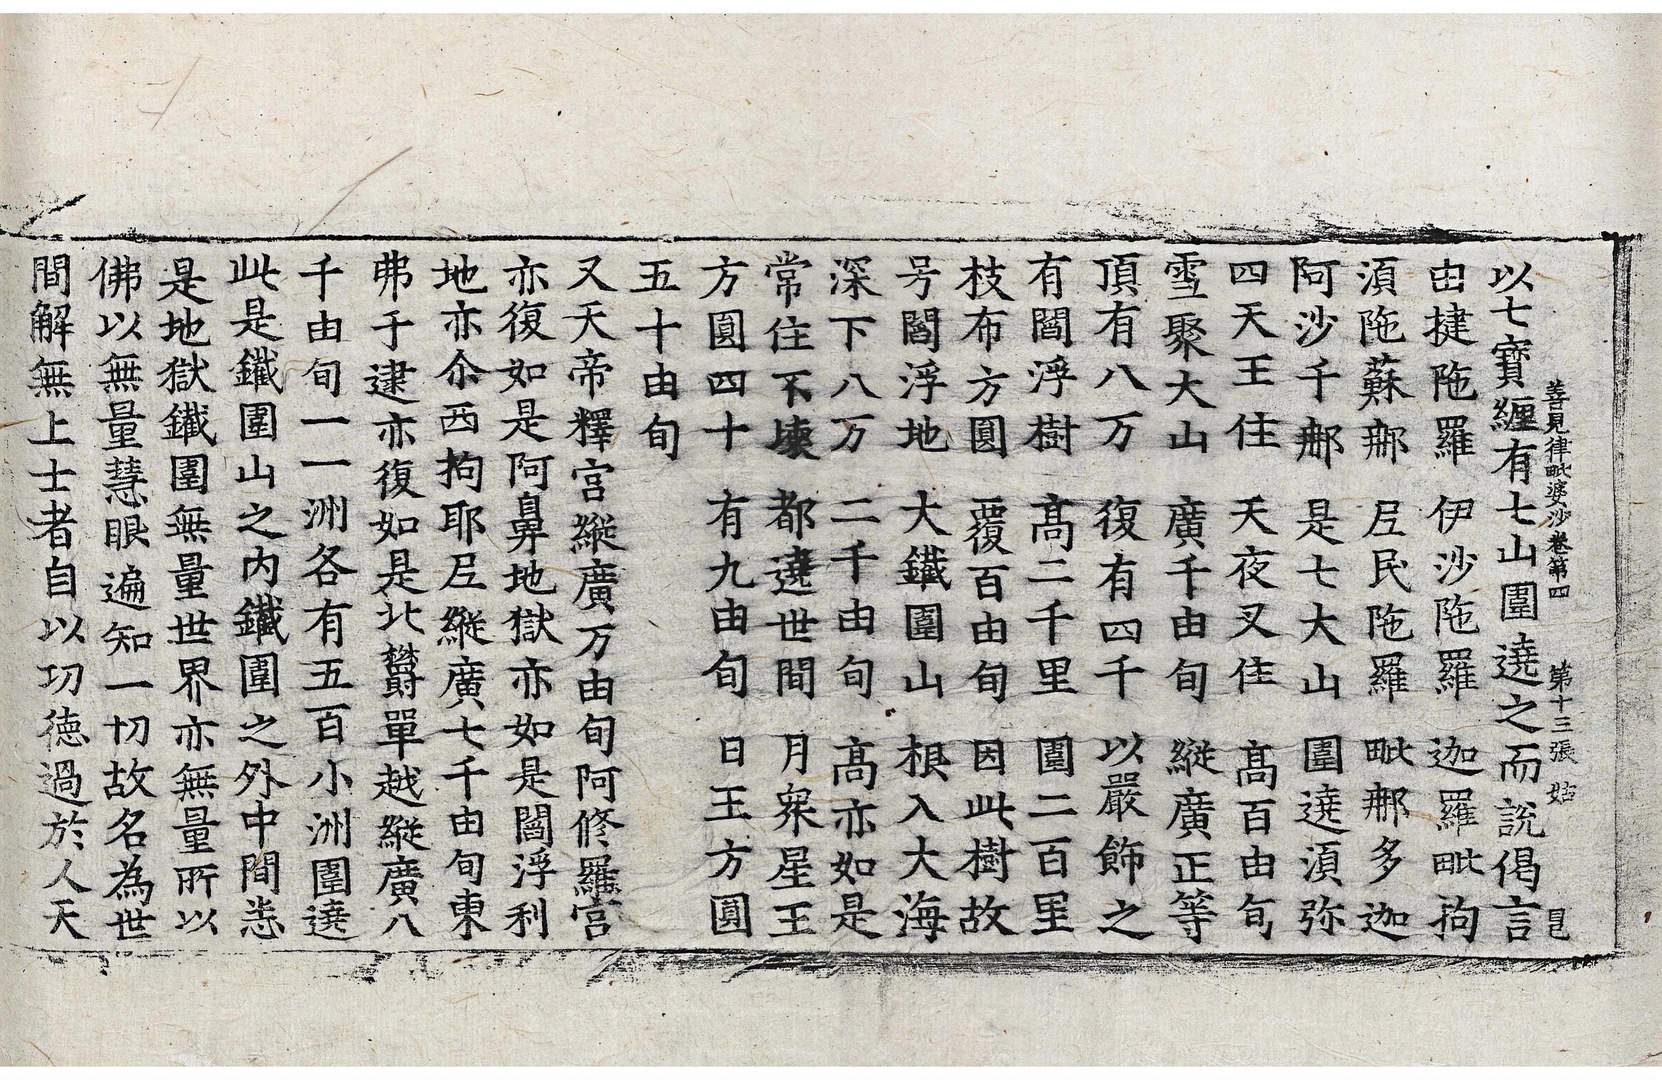 善見律毗婆沙卷第四 第十三張 始 
以七寶纏有七山圍遶之而說偈言
由揵陁羅 伊沙陁羅 迦羅毗拘
湏陁蘇郍 尼民陁羅 毗郍多迦
阿沙千郍 是七大山 圍遶湏弥
四天王住 天夜叉住 髙百由旬
雪聚大山 廣千由旬 縱廣正等
頂有八万 復有四千 以嚴飾之
有閻浮樹 髙二千里 圍二百里
枝布方圓 覆百由旬 因此樹故
号閻浮地 大鐵圍山 根入大海
深下八万 二千由旬 髙亦如是
常住不壞 都遶世間 月衆星王
方圓四十 有九由旬 日王方圓
五十由旬
又天帝釋宫縱廣万由旬阿修羅宫
亦復如是阿鼻地獄亦如是閻浮利
地亦尒西拘耶尼縱廣七千由旬東
弗于逮亦復如是北欝單越縱廣八
千由旬一一洲各有五百小洲圍遶
此是鐵圍山之内鐵圍之外中間悉
是地獄鐵圍無量世界亦無量所以
佛以無量慧眼遍知一切故名為世
間解無上士者自以功德過於人天